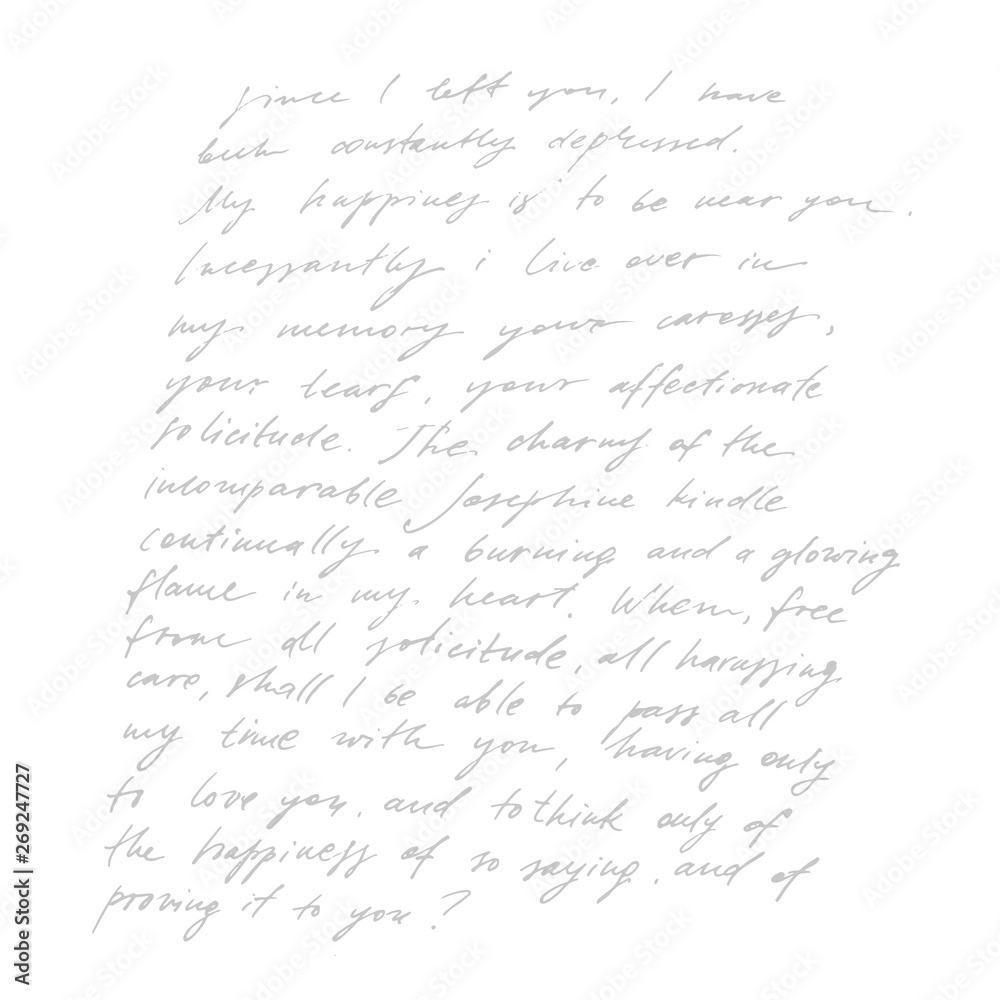 Since I left you, I have
been constantly depressed.
My happiness is to be near you.
Incessantly i live over in
my memory your caresses,
your tears, your affectionate
solicitude. The charms of the
incomparable Josephine kindle
continually a burning and a glowing
flame in my heart. When, free
from all solicitude, all harassing
care, shall I be able to pass all
my time with you, having only
to love you, and to think only of
the happiness of so saying, and of
proving it to you?
Adobe Stock | #269247727